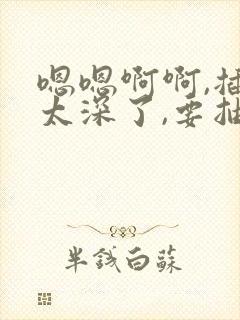 嗯嗯啊啊,插
太深了,要抽
半钱白蘇